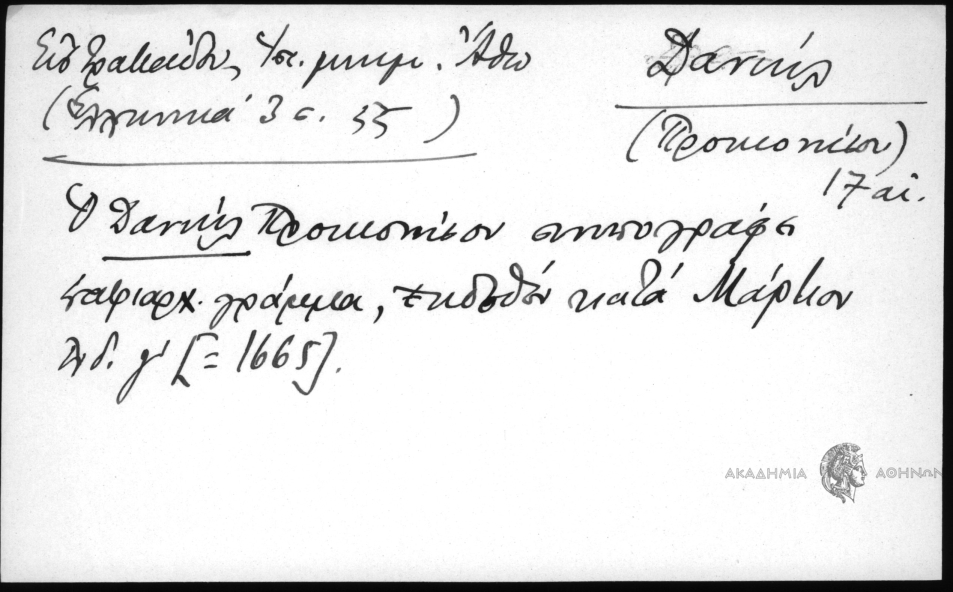 Εὐστρατιάδου, Ἱστ. μνημ. Ἄθω
(Ἑλληνικά 3 σ. 55)
Δανιήλ
(Προικονήσου)
17 αἰ.
Ὁ Δανιήλ Προικονήσου συνυπογράφει
πατριαρχ. γράμμα, ἐκδοθέν κατά Μάρτιον
ἰνδ. γ' [= 1665].
ΑΚΑΔΗΜΙΑ ΑΘΗΝΩΝ